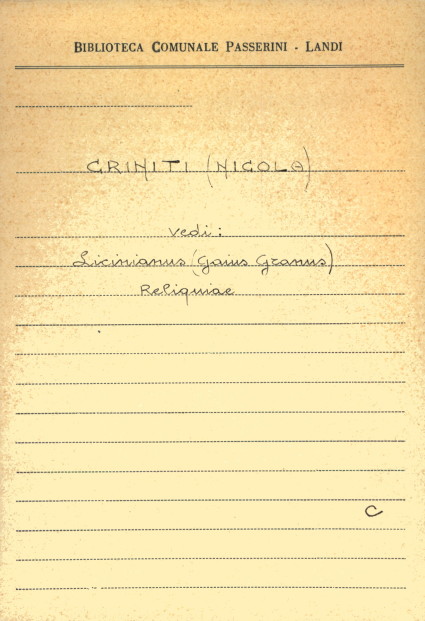 BIBLIOTECA COMUNALE PASSERINI - LANDI
CRINITI (NICOLA)
Vedi:
Licinianus (Gaius Granus)
Reliquiae
C